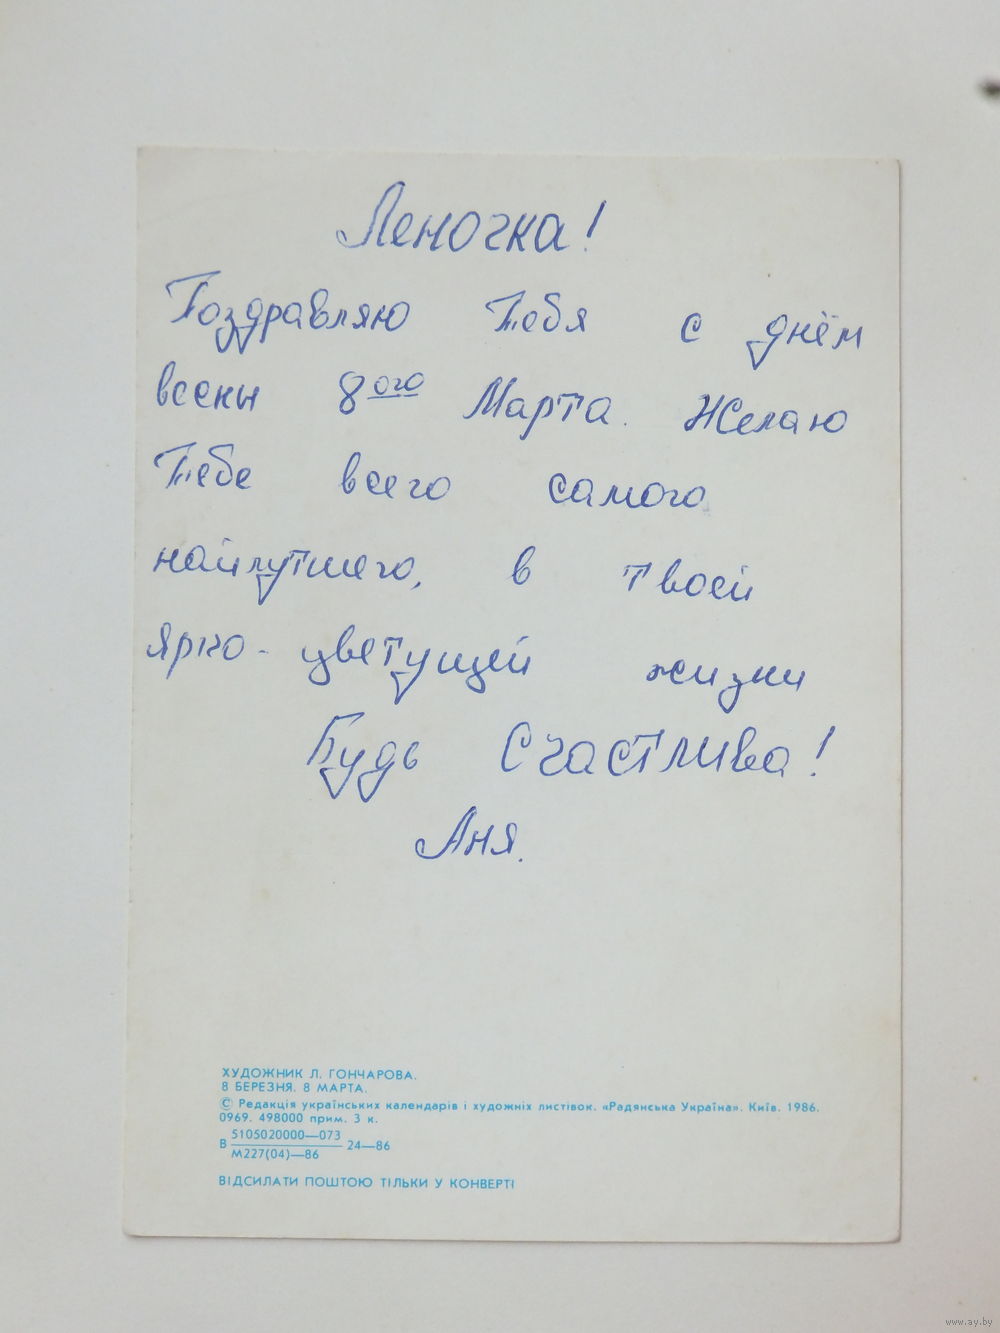 Леночка!
Поздравляю Тебя с днём
весны 8ого Марта. Желаю
Тебе всего самого
найлутшего, в твоей
ярко-цветущей жизни
Будь Счастлива!
Аня.
ХУДОЖНИК Л. ГОНЧАРОВА.
8 БЕРЕЗНЯ. 8 МАРТА.
© Редакція українських календарів і художніх листівок. «Радянська Україна». Київ. 1986.
0969. 498000 прим. 3 к.
В 5105020000—073 24—86
М227(04)—86
ВІДСИЛАТИ ПОШТОЮ ТІЛЬКИ У КОНВЕРТІ
www.ay.by